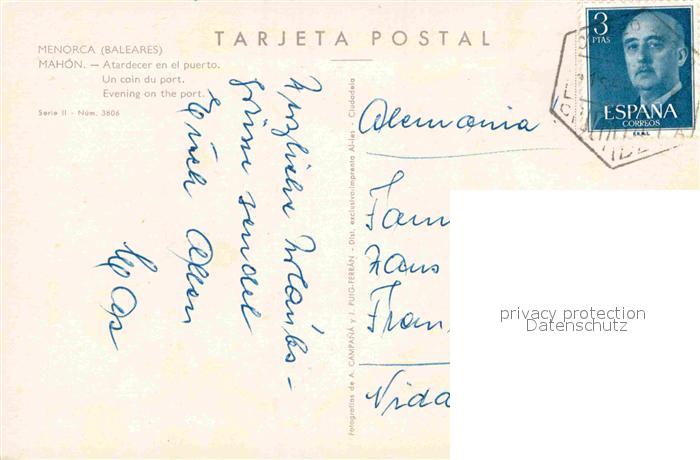 TARJETA POSTAL
MENORCA (BALEARES)
MAHÓN. — Atardecer en el puerto.
Un coin du port.
Evening on the port.
Serie II - Núm. 3806
Herzliche Urlaubs-
grüsse sendet
Euch Allen
Fotografías de A. CAMPAÑÁ y J. PUIG-FERRÁN - Dist. exclusiva: Imprenta Al-les - Ciudadela
3
PTAS
ESPAÑA
CORREOS
Alemania
Fam
Hans
Fran
Nida
privacy protection
Datenschutz